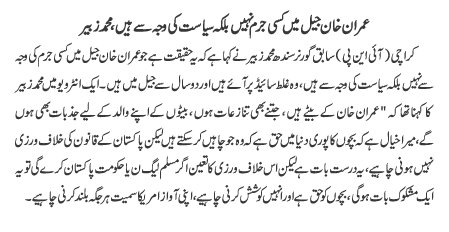 عمران خان جیل میں کسی جرم نہیں بلکہ سیاست کی وجہ سے ہیں، محمد زبیر
کراچی (آئی این پی) سابق گورنر سندھ محمد زبیر نے کہا ہے کہ یہ حقیقت ہے جو عمران خان جیل میں ہیں کسی جرم کی وجہ
سے نہیں بلکہ سیاست کی وجہ سے ہیں، وہ غلط سائیڈ پر آئے ہیں اور دو سال سے جیل میں ہیں۔ ایک انٹرویو میں محمد زبیر
کا کہنا تھا کہ "عمران خان کے بیٹے ہیں، جتنے بھی تنازعات ہوں، بیٹوں کے اپنے والد کے لیے جذبات بھی ہوں
گے، میرا خیال ہے کہ بچوں کا پوری دنیا میں حق ہے کہ وہ جو چاہیں کر سکتے ہیں لیکن پاکستان کے قانون کی خلاف ورزی
نہیں ہونی چاہیے، یہ درست بات ہے لیکن اس خلاف ورزی کا تعین اگر مسلم لیگ ن یا حکومت پاکستان کرے گی تو یہ
ایک مشکوک بات ہوگی، بچوں کو حق ہے اور انہیں کوشش کرنی چاہیے، اپنی آواز امریکا سمیت ہر جگہ بلند کرنی چاہیے۔